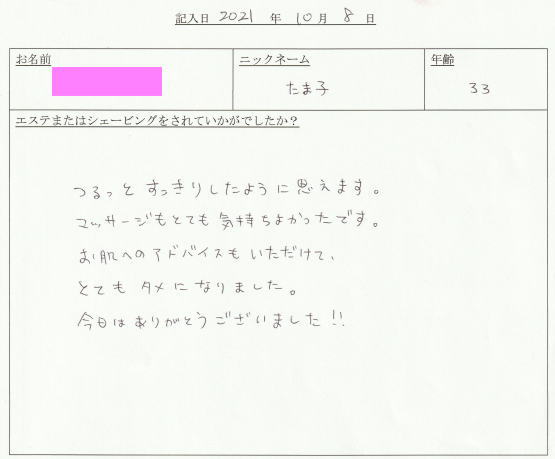 記入日 2021 年 10 月 8 日
お名前 ニックネーム 年齢
たま子 33
エステまたはシェービングをされていかがでしたか？
つるっとすっきりしたように思えます。
マッサージもとても気持ちよかったです。
お肌へのアドバイスもいただけて、
とてもタメになりました。
今日はありがとうございました!!